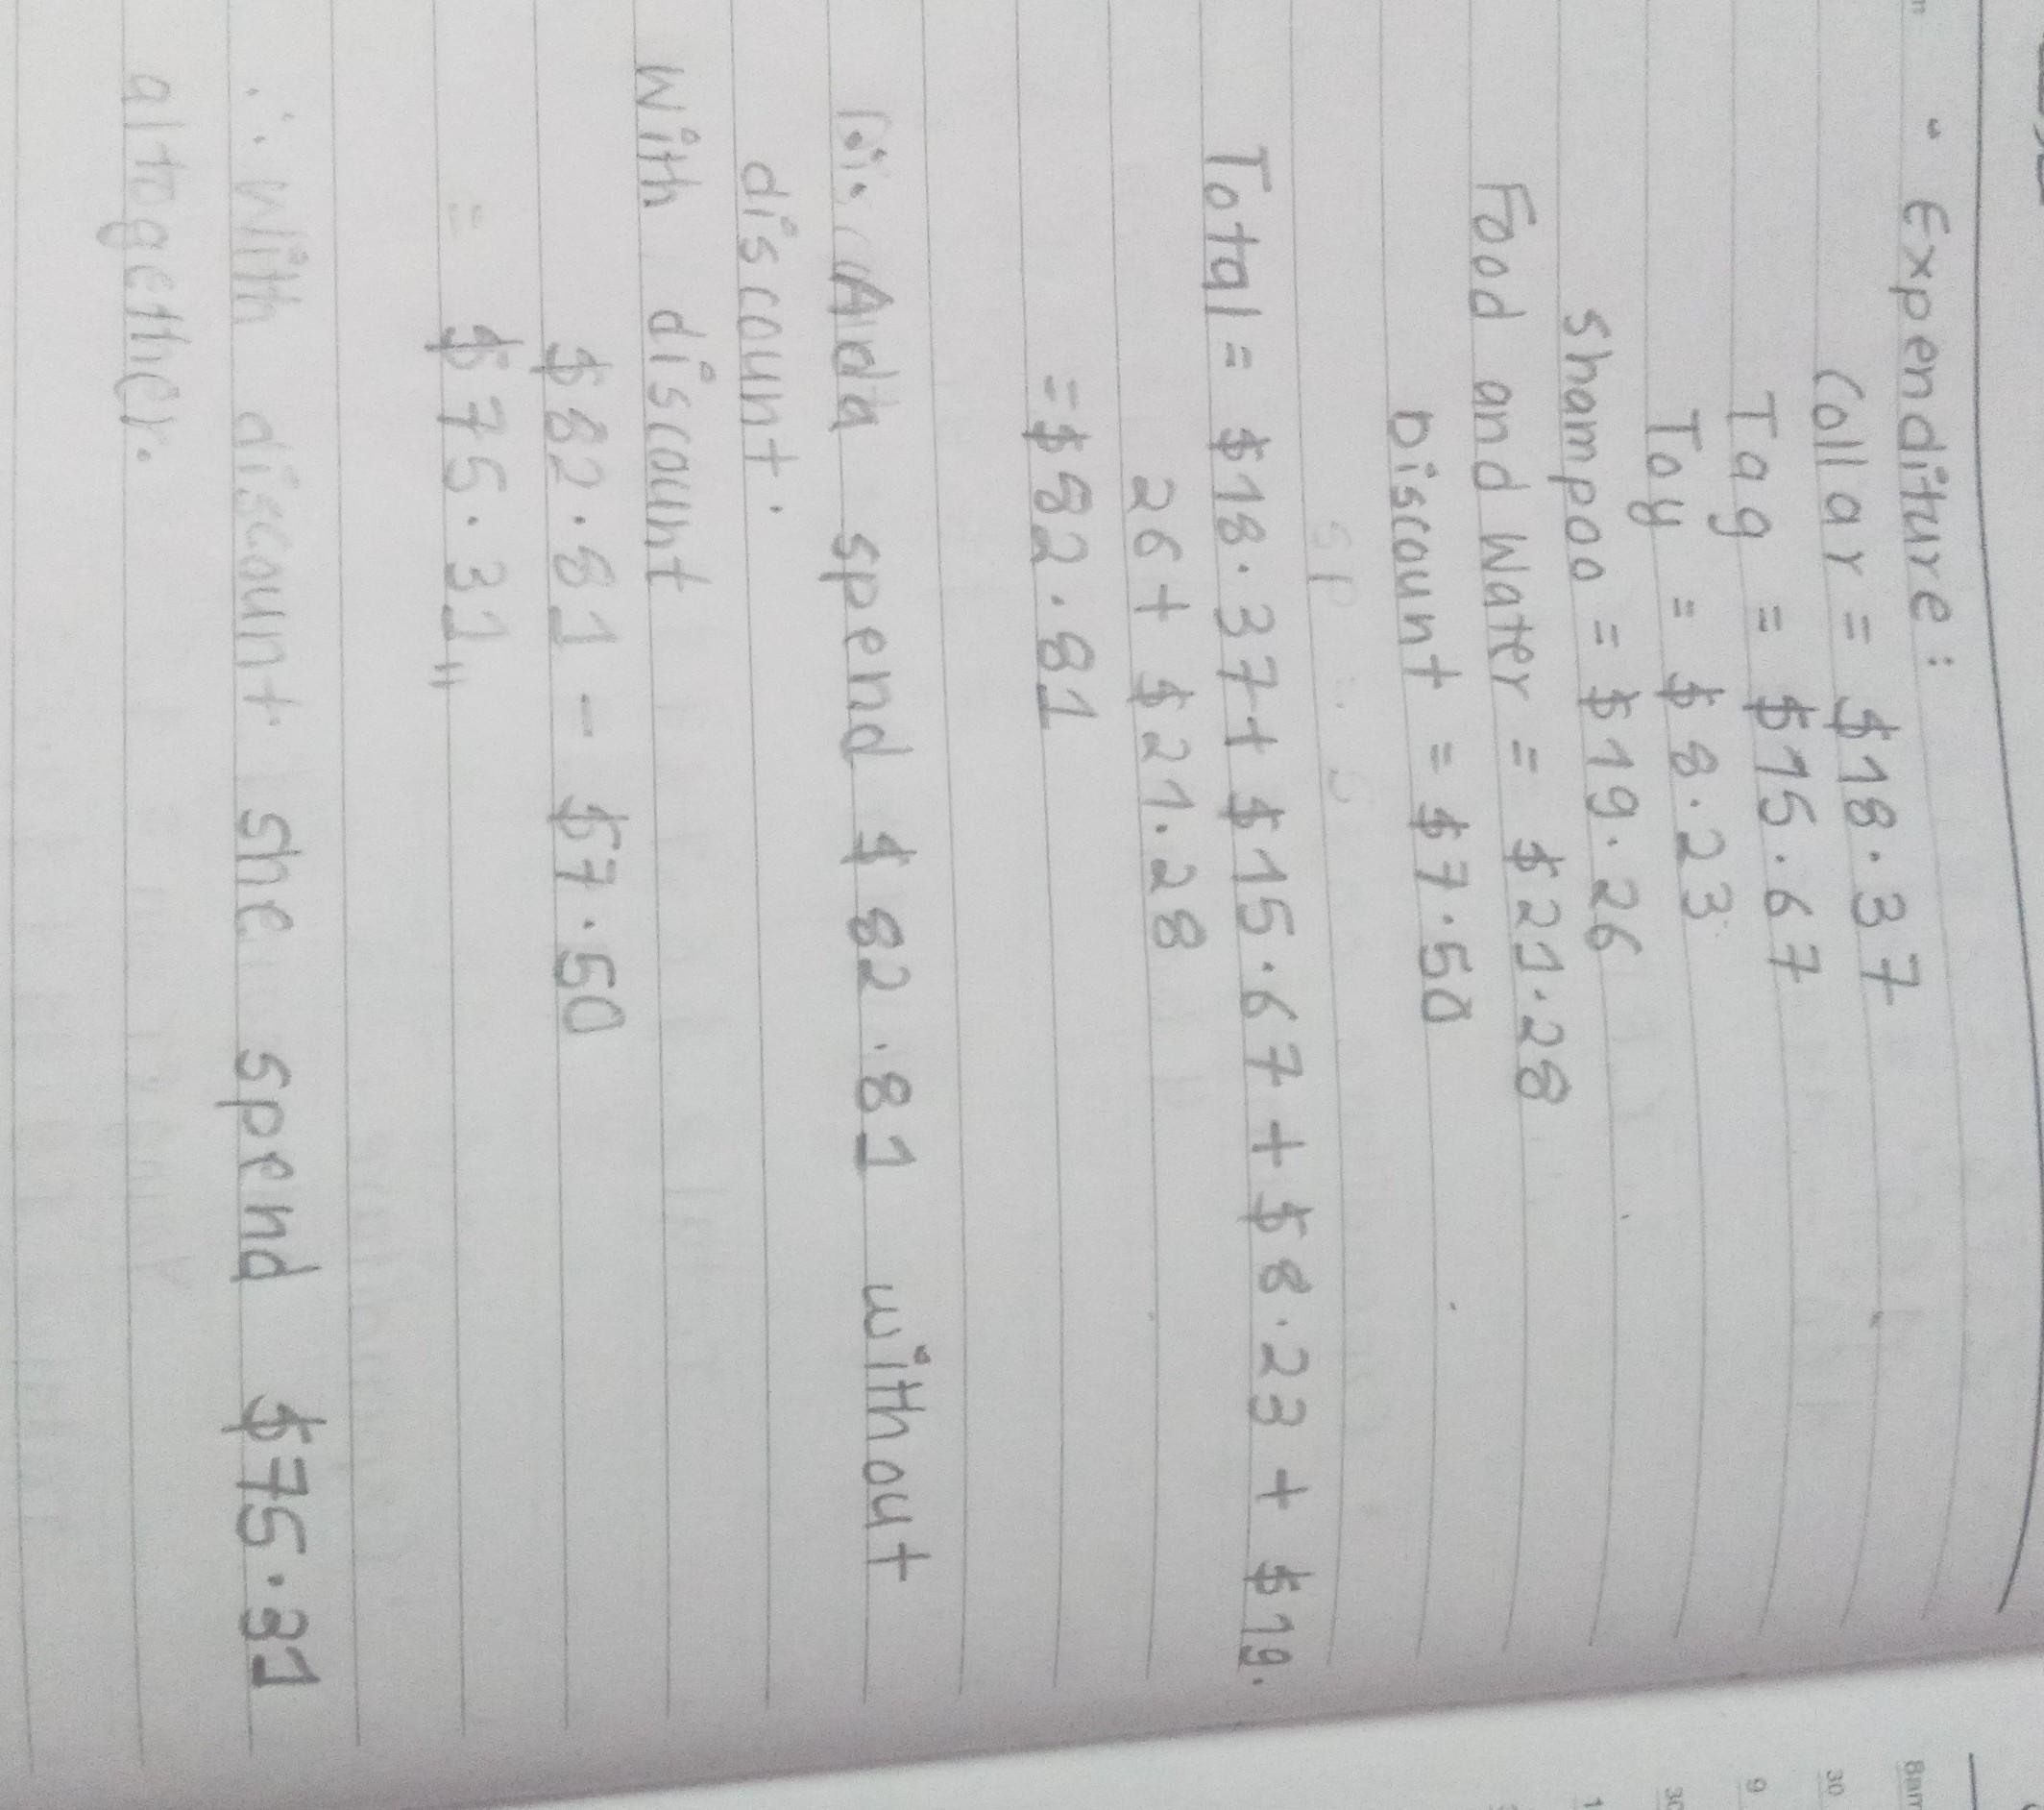 - Expenditure:
Collar = $18.37
Tag = $15.67
Toy = $8.23
Shampoo = $19.26
Food and Water = $21.28
Discount = $7.50
Total = $18.37 + $15.67 + $8.23 + $19.
26 + $21.28
= $82.81
Ada spend $82.81 without
discount.
With discount
$82.81 - $7.50
= $75.31"
∴ With discount she spend $75.31
altogether.
8am
30
9
30
1